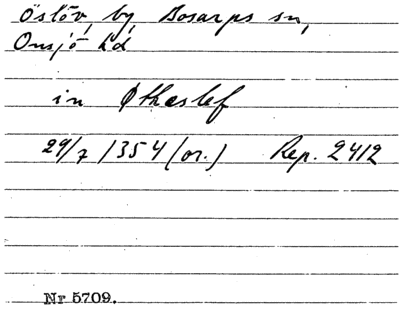 Östöv, by, Bosarps sn,
Onsjö hd
in Østhæslef
29/7 1354 (or.) Rep. 2412
Nr 5709.